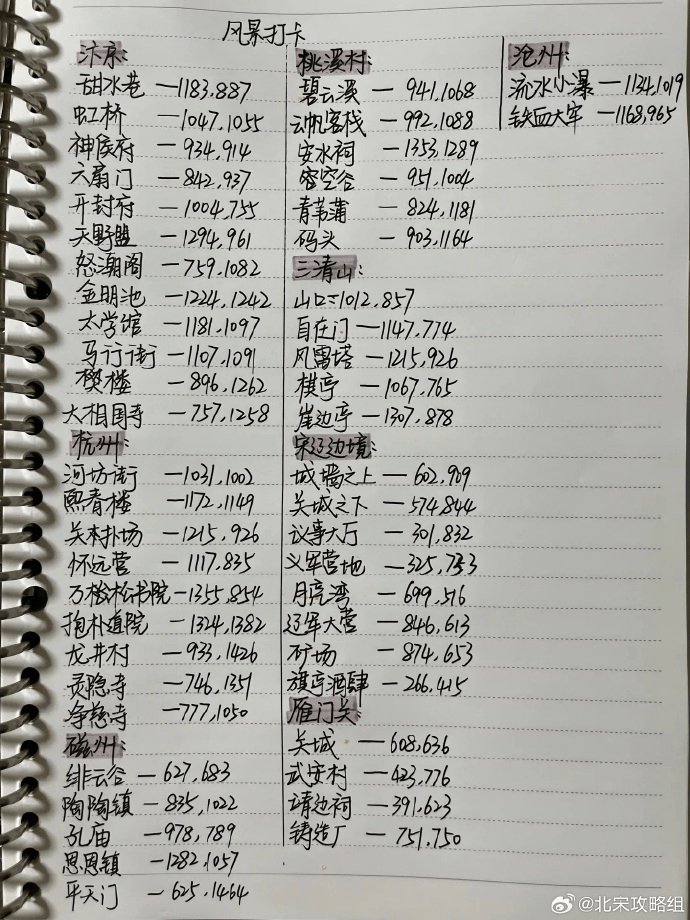 风景打卡
汴京:
甜水巷 —1183,887
虹桥 —1047,1055
神侯府 —934,914
六扇门 —842,937
开封府 —1004,755
天野盟 —1294,961
怒潮阁 —759,1082
金明池 —1224,1242
太学馆 —1181,1097
马行街 —1107,1091
樊楼 —896,1262
大相国寺 —757,1258
杭州:
河坊街 —1031,1002
熙春楼 —1172,1149
关扑场 —1215,926
怀远营 —1117,835
万松书院 —1355,854
抱朴道院 —1324,1382
龙井村 —933,1426
灵隐寺 —746,1351
净慈寺 —777,1050
磁州:
绯云谷 —627,683
陶陶镇 —835,1022
孔庙 —978,789
思恩镇 —1282,1057
平天门 —625,1464
桃溪村:
碧云溪 — 941,1068
云帆客栈 — 992,1088
安水祠 —1353,1289
密空谷 —951,1004
青苇蒲 — 824,1181
码头 — 903,1164
三清山:
山口 =1012,857
自在门 —1147,774
风雷塔 —1215,926
棋亭 —1067,765
崖边亭 —1307,878
宋辽边境:
城墙之上 — 602,909
关城之下 — 574,844
议事大厅 — 301,832
义军营地 —325,753
月亮湾 — 699,516
辽军大营 —846,613
矿场 — 874,653
旗亭酒肆 —266,415
雁门关:
关城 —608,636
武安村 —423,776
靖边祠 —391,623
铸造厂 — 751,750
沧州:
流水小瀑 —1134,1019
铁血大牢 —1168,965
@北宋攻略组